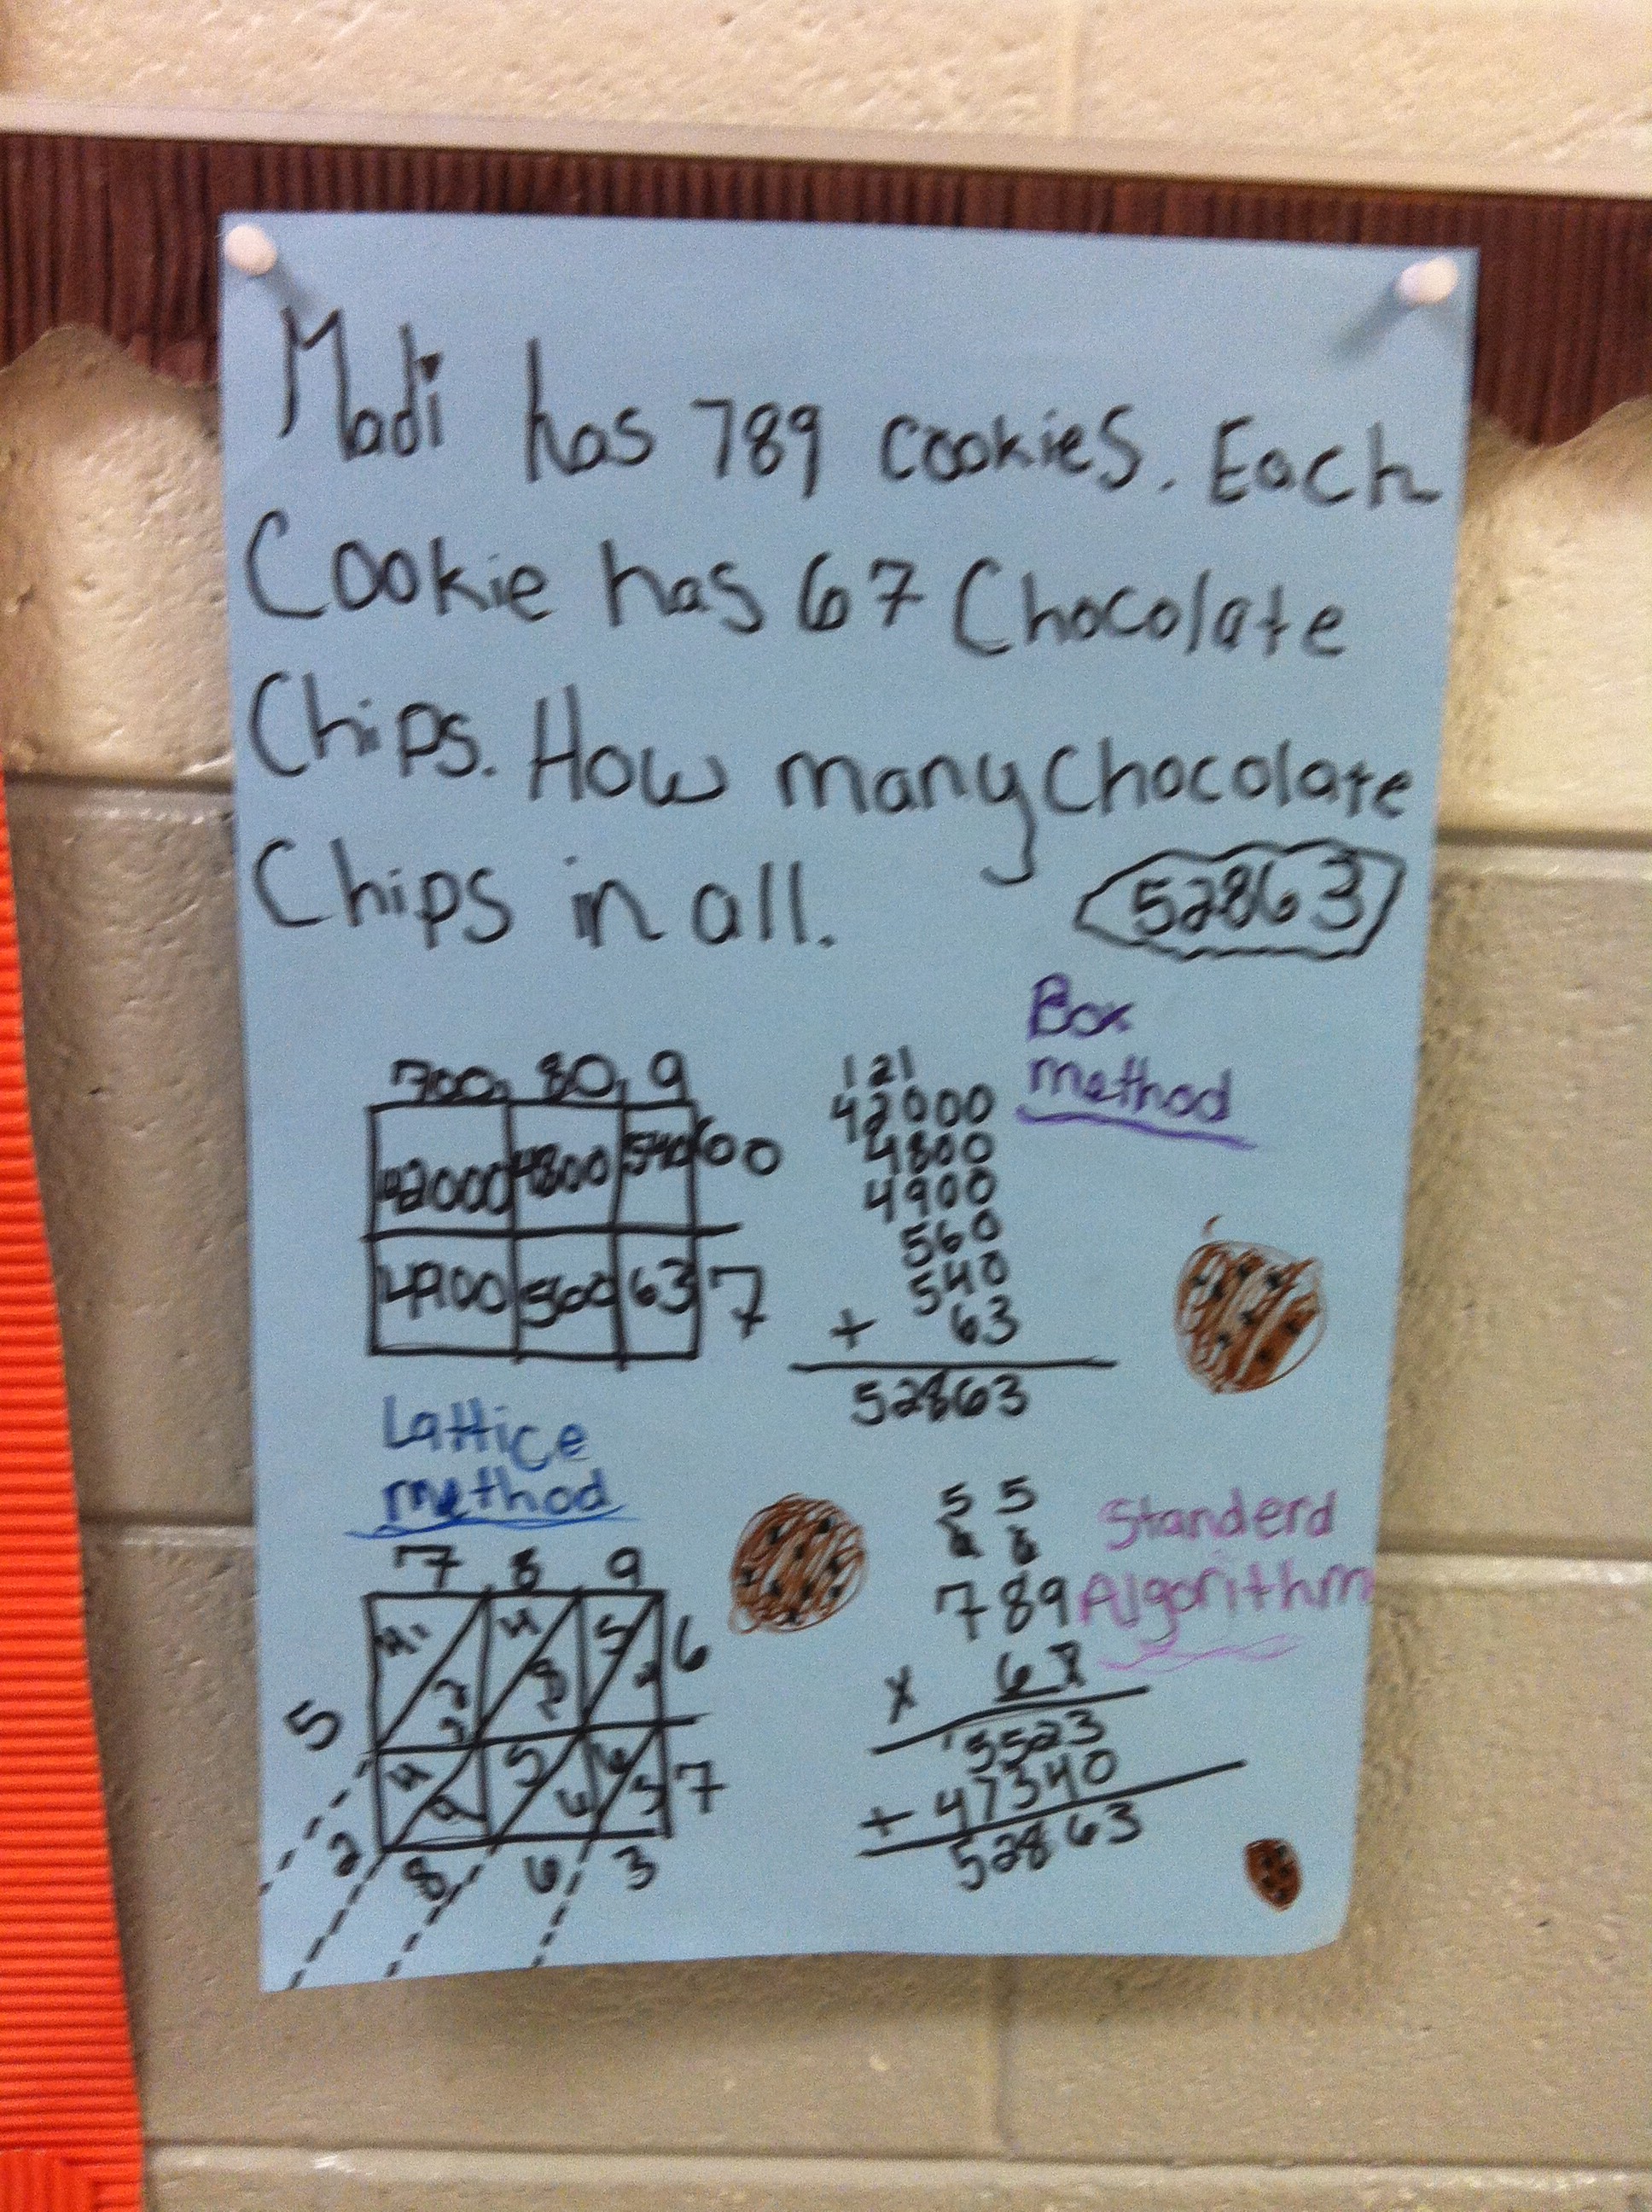 Madi has 789 cookies. Each
Cookie has 67 Chocolate
Chips. How many Chocolate
Chips in all.
52863
Box
method
700 80 9
42000 4800 540 60
4900 560 63 7
121
42000
4800
4900
560
540
+ 63
52863
Lattice
method
7 8 9
6
7
5
2 8 6 3
Standerd
Algorithm
5 5
789
x 67
5523
+ 47340
52863